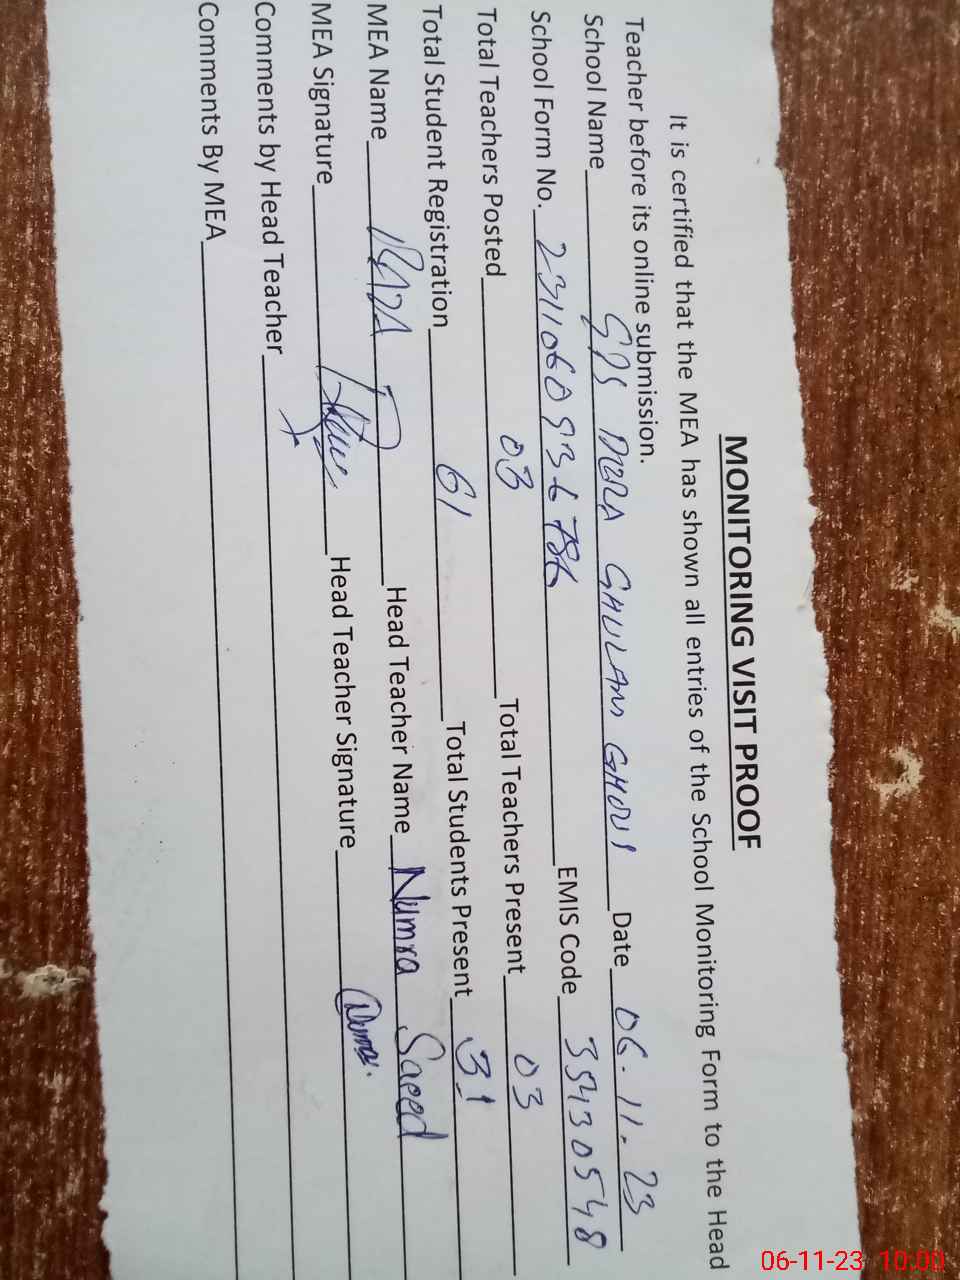 MONITORING VISIT PROOF
It is certified that the MEA has shown all entries of the School Monitoring Form to the Head
Teacher before its online submission.
School Name GPS DERA GHULAM GHOUS Date 06.11.23
School Form No. EMIS Code 35430548
Total Teachers Posted 03 Total Teachers Present 03
Total Student Registration 61 Total Students Present 31
MEA Name Head Teacher Name Numra Saeed
MEA Signature Head Teacher Signature
Comments by Head Teacher
Comments By MEA
06-11-23 10:00